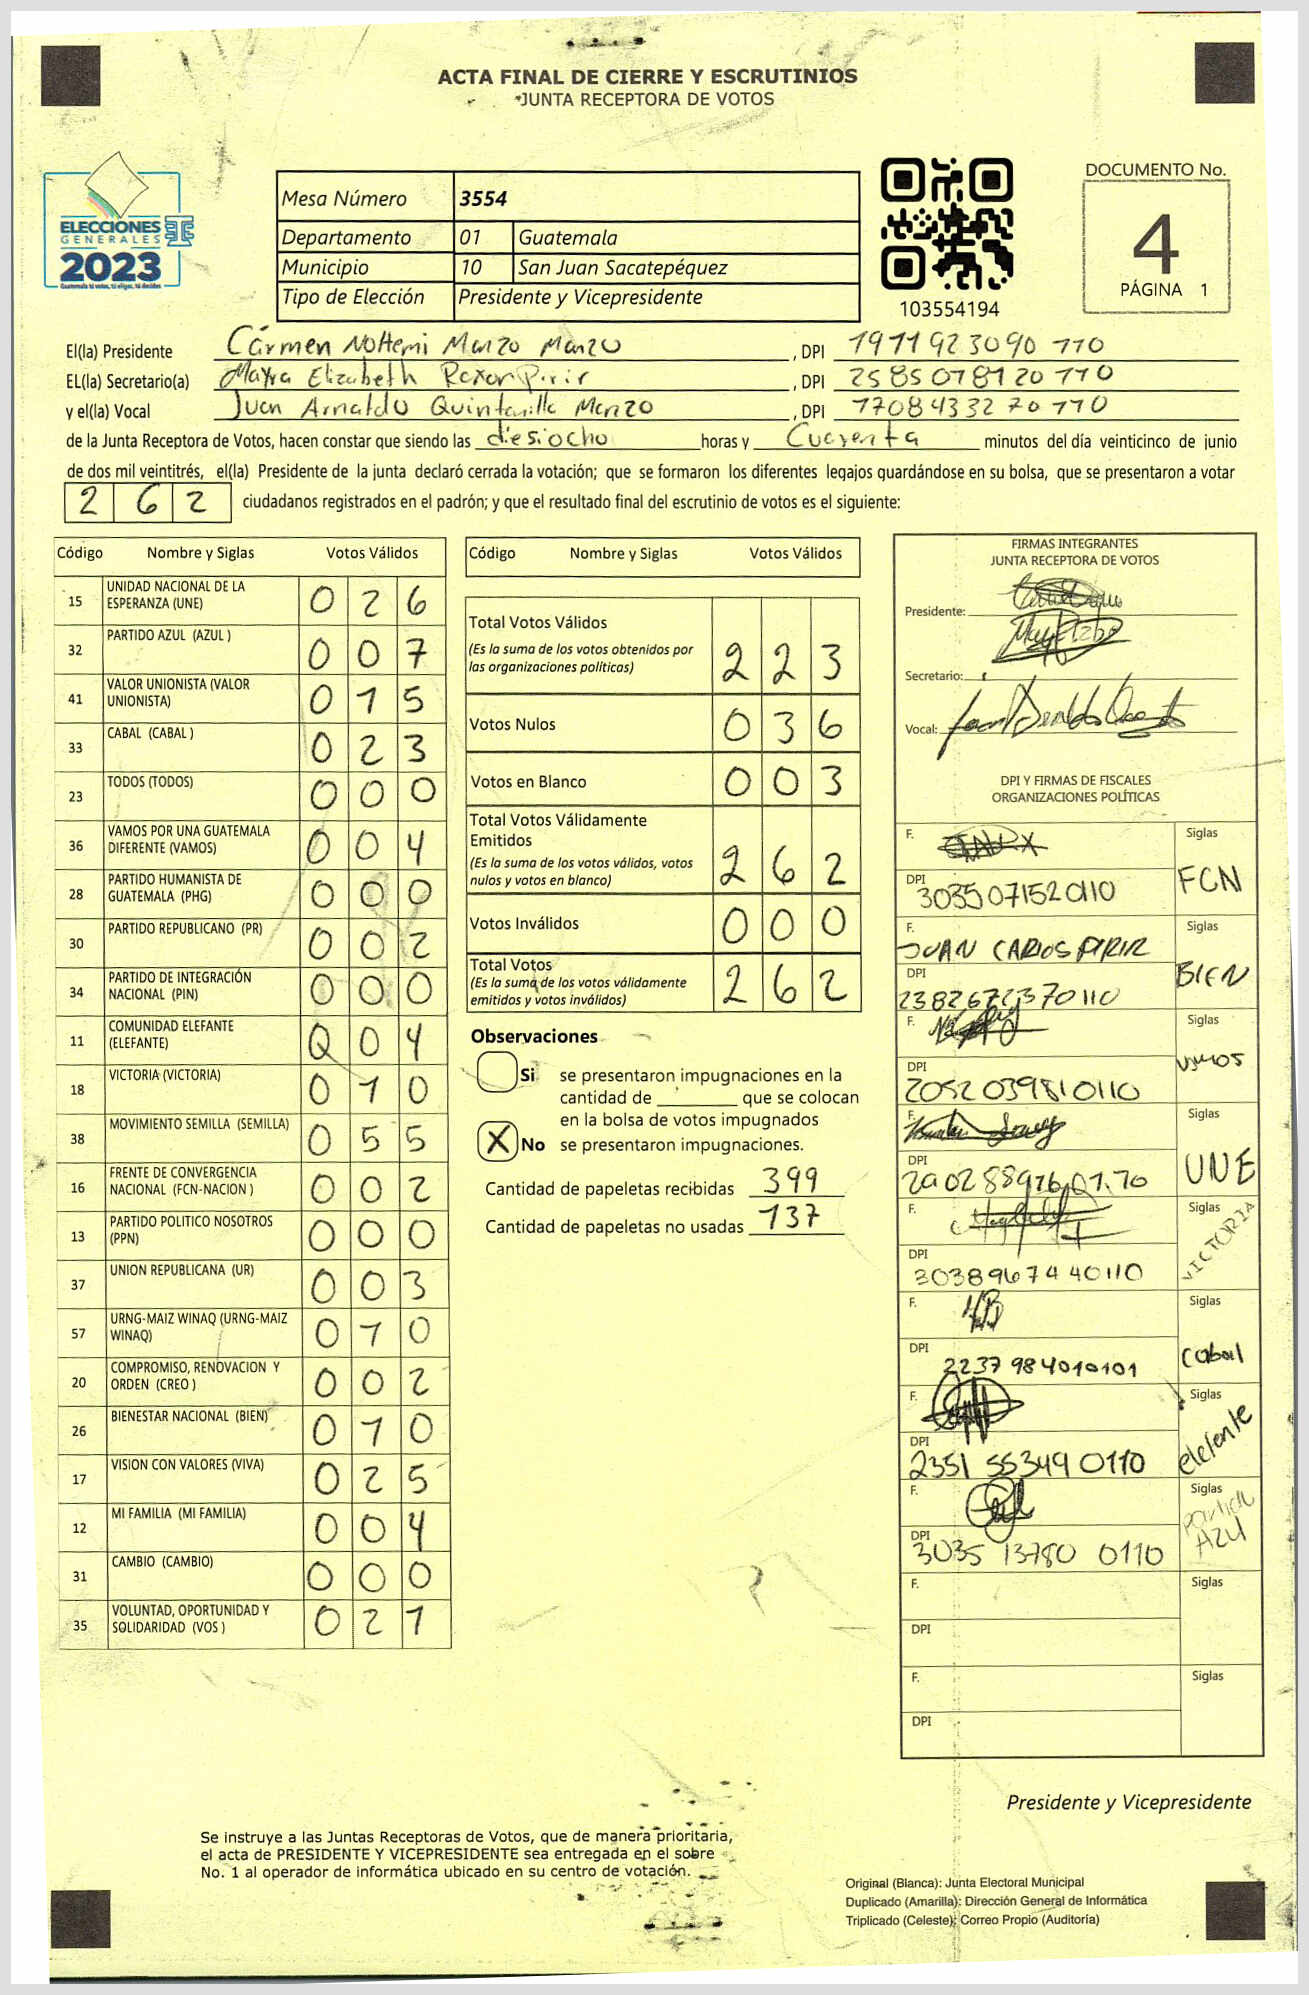 ACTA FINAL DE CIERRE Y ESCRUTINIOS
JUNTA RECEPTORA DE VOTOS
ELECCIONES
GENERALES
2023
Guatemala tú votas, tú eliges, tú decides
Mesa Número 3554
Departamento 01 Guatemala
Municipio 10 San Juan Sacatepéquez
Tipo de Elección Presidente y Vicepresidente
103554194
DOCUMENTO No.
4
PÁGINA 1
El(la) Presidente Cármen Nohemi Manzo Manzo , DPI 1971 92309 0 110
EL(la) Secretario(a) Mayra Elizabeth Raxon Pirir , DPI 2585 07812 0 110
y el(la) Vocal Juan Arnaldo Quintanilla Manzo , DPI 1708433270110
de la Junta Receptora de Votos, hacen constar que siendo las diesiocho horas y Cuarenta minutos del día veinticinco de junio
de dos mil veintitrés, el(la) Presidente de la junta declaró cerrada la votación; que se formaron los diferentes legajos guardándose en su bolsa, que se presentaron a votar
262 ciudadanos registrados en el padrón; y que el resultado final del escrutinio de votos es el siguiente:
Código Nombre y Siglas Votos Válidos
15 UNIDAD NACIONAL DE LA ESPERANZA (UNE) 026
32 PARTIDO AZUL (AZUL ) 007
41 VALOR UNIONISTA (VALOR UNIONISTA) 015
33 CABAL (CABAL ) 023
23 TODOS (TODOS) 000
36 VAMOS POR UNA GUATEMALA DIFERENTE (VAMOS) 004
28 PARTIDO HUMANISTA DE GUATEMALA (PHG) 000
30 PARTIDO REPUBLICANO (PR) 002
34 PARTIDO DE INTEGRACIÓN NACIONAL (PIN) 000
11 COMUNIDAD ELEFANTE (ELEFANTE) 004
18 VICTORIA (VICTORIA) 010
38 MOVIMIENTO SEMILLA (SEMILLA) 055
16 FRENTE DE CONVERGENCIA NACIONAL (FCN-NACION ) 002
13 PARTIDO POLITICO NOSOTROS (PPN) 000
37 UNION REPUBLICANA (UR) 003
57 URNG-MAIZ WINAQ (URNG-MAIZ WINAQ) 010
20 COMPROMISO, RENOVACION Y ORDEN (CREO ) 002
26 BIENESTAR NACIONAL (BIEN) 010
17 VISION CON VALORES (VIVA) 025
12 MI FAMILIA (MI FAMILIA) 004
31 CAMBIO (CAMBIO) 000
35 VOLUNTAD, OPORTUNIDAD Y SOLIDARIDAD (VOS ) 021
Código Nombre y Siglas Votos Válidos
Total Votos Válidos 223
(Es la suma de los votos obtenidos por
las organizaciones políticas)
Votos Nulos 036
Votos en Blanco 003
Total Votos Válidamente
Emitidos 262
(Es la suma de los votos válidos, votos
nulos y votos en blanco)
Votos Inválidos 000
Total Votos 262
(Es la suma de los votos válidamente
emitidos y votos inválidos)
Observaciones
Si se presentaron impugnaciones en la
cantidad de ________ que se colocan
en la bolsa de votos impugnados
X No se presentaron impugnaciones.
Cantidad de papeletas recibidas 399
Cantidad de papeletas no usadas 137
FIRMAS INTEGRANTES
JUNTA RECEPTORA DE VOTOS
Presidente:
Secretario:
Vocal:
DPI Y FIRMAS DE FISCALES
ORGANIZACIONES POLÍTICAS
F. Siglas FCN
DPI 3035 07152 0110
F. JUAN CARLOS PIRIR Siglas BIEN
DPI 2382672370110
F. Siglas vamos
DPI 2052 03981 0110
F. Siglas UNE
DPI
F. Siglas VICTORIA
DPI 3038967440110
F. Siglas Cabal
DPI 2237 98401 0101
F. Siglas elefante
DPI 2351 55349 0110
F. Siglas Partido AZUl
DPI 3035 13780 0110
F. Siglas
DPI
F. Siglas
DPI
Presidente y Vicepresidente
Se instruye a las Juntas Receptoras de Votos, que de manera prioritaria,
el acta de PRESIDENTE Y VICEPRESIDENTE sea entregada en el sobre
No. 1 al operador de informática ubicado en su centro de votación.
Original (Blanca): Junta Electoral Municipal
Duplicado (Amarilla): Dirección General de Informática
Triplicado (Celeste): Correo Propio (Auditoría)